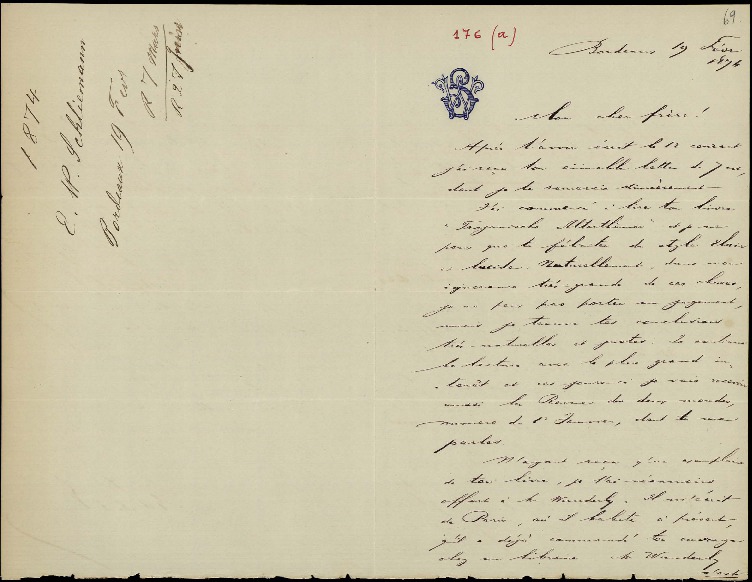 1874
E. W. Schliemann
Bordeaux 19 Fevr
R 7 Mars
R 28
69
176 (a)
Bordeaux 19 Févr
1874
Mon cher frère!
Après t'avoir écrit le 12 courant
j'ai reçu ton aimable lettre du 7 ct,
dont je te remercie sincèrement
J'ai commencé à lire ton livre
"Trojanische Alterthümer" et je ne
peux que te féliciter du style clair
et lucide. Naturellement, dans mon
ignorance très grande de ces choses,
je ne peux pas porter un jugement,
mais je trouve tes conclusions
très naturelles et justes. Je continue
la lecture avec le plus grand in-
térêt et ces jours-ci je vais recevoir
aussi la Revue des deux mondes,
numéro de 1r Janvier, dont tu me
parles.
N'ayant reçu qu'un exemplaire
de ton livre, je l'ai néanmoins
offert à Mr Wunderly. Il m'écrit
de Paris, où il habite à présent,
qu'il a déjà commandé ton ouvrage
chez un libraire Mr Wunderly